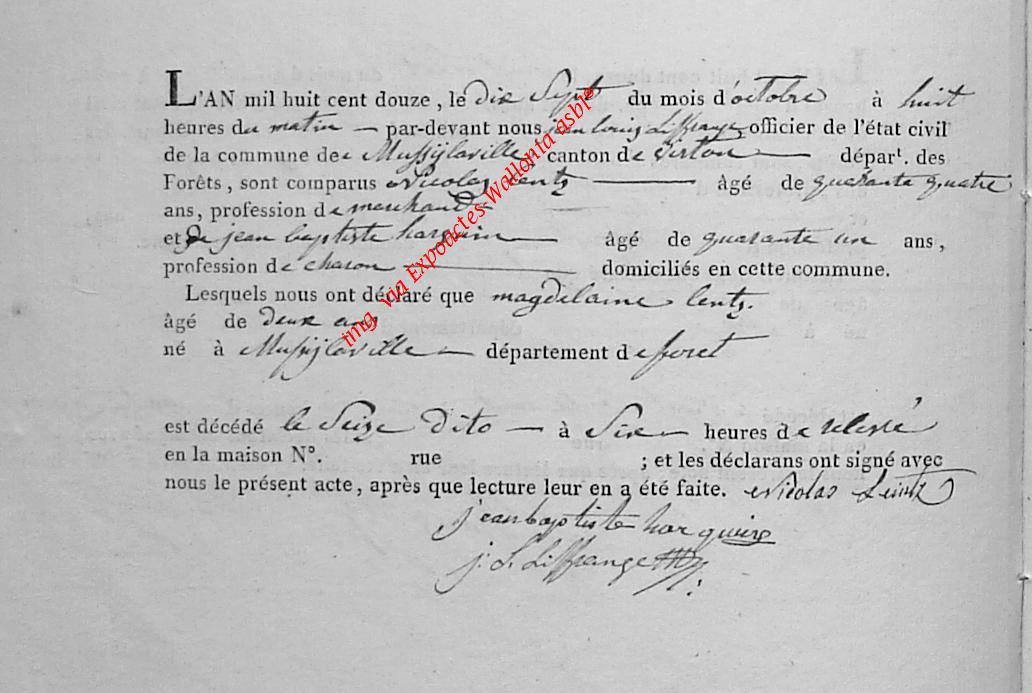 L'AN mil huit cent douze, le dix Sept du mois d'octobre à huit
heures du matin — par-devant nous jean louis Liffrange officier de l'état civil
de la commune de Mussijlaville canton de Virton — départ. des
Forêts, sont comparus Nicolas lentz — âgé de quarante quatre
ans, profession de marchand
et de jean baptiste harquin — âgé de quarante un ans,
profession de charon — domiciliés en cette commune.
Lesquels nous ont déclaré que magdelaine lentz.
âgé de deux ans
né à Mussijlaville — département de foret
est décédé le Seize dito — à Six heures de relevé
en la maison N°. rue ; et les déclarans ont signé avec
nous le présent acte, après que lecture leur en a été faite. Nicolas Leintz
jean baptiste harquin
j. L. Liffrange
img via Expoactes Wallonia asbl®